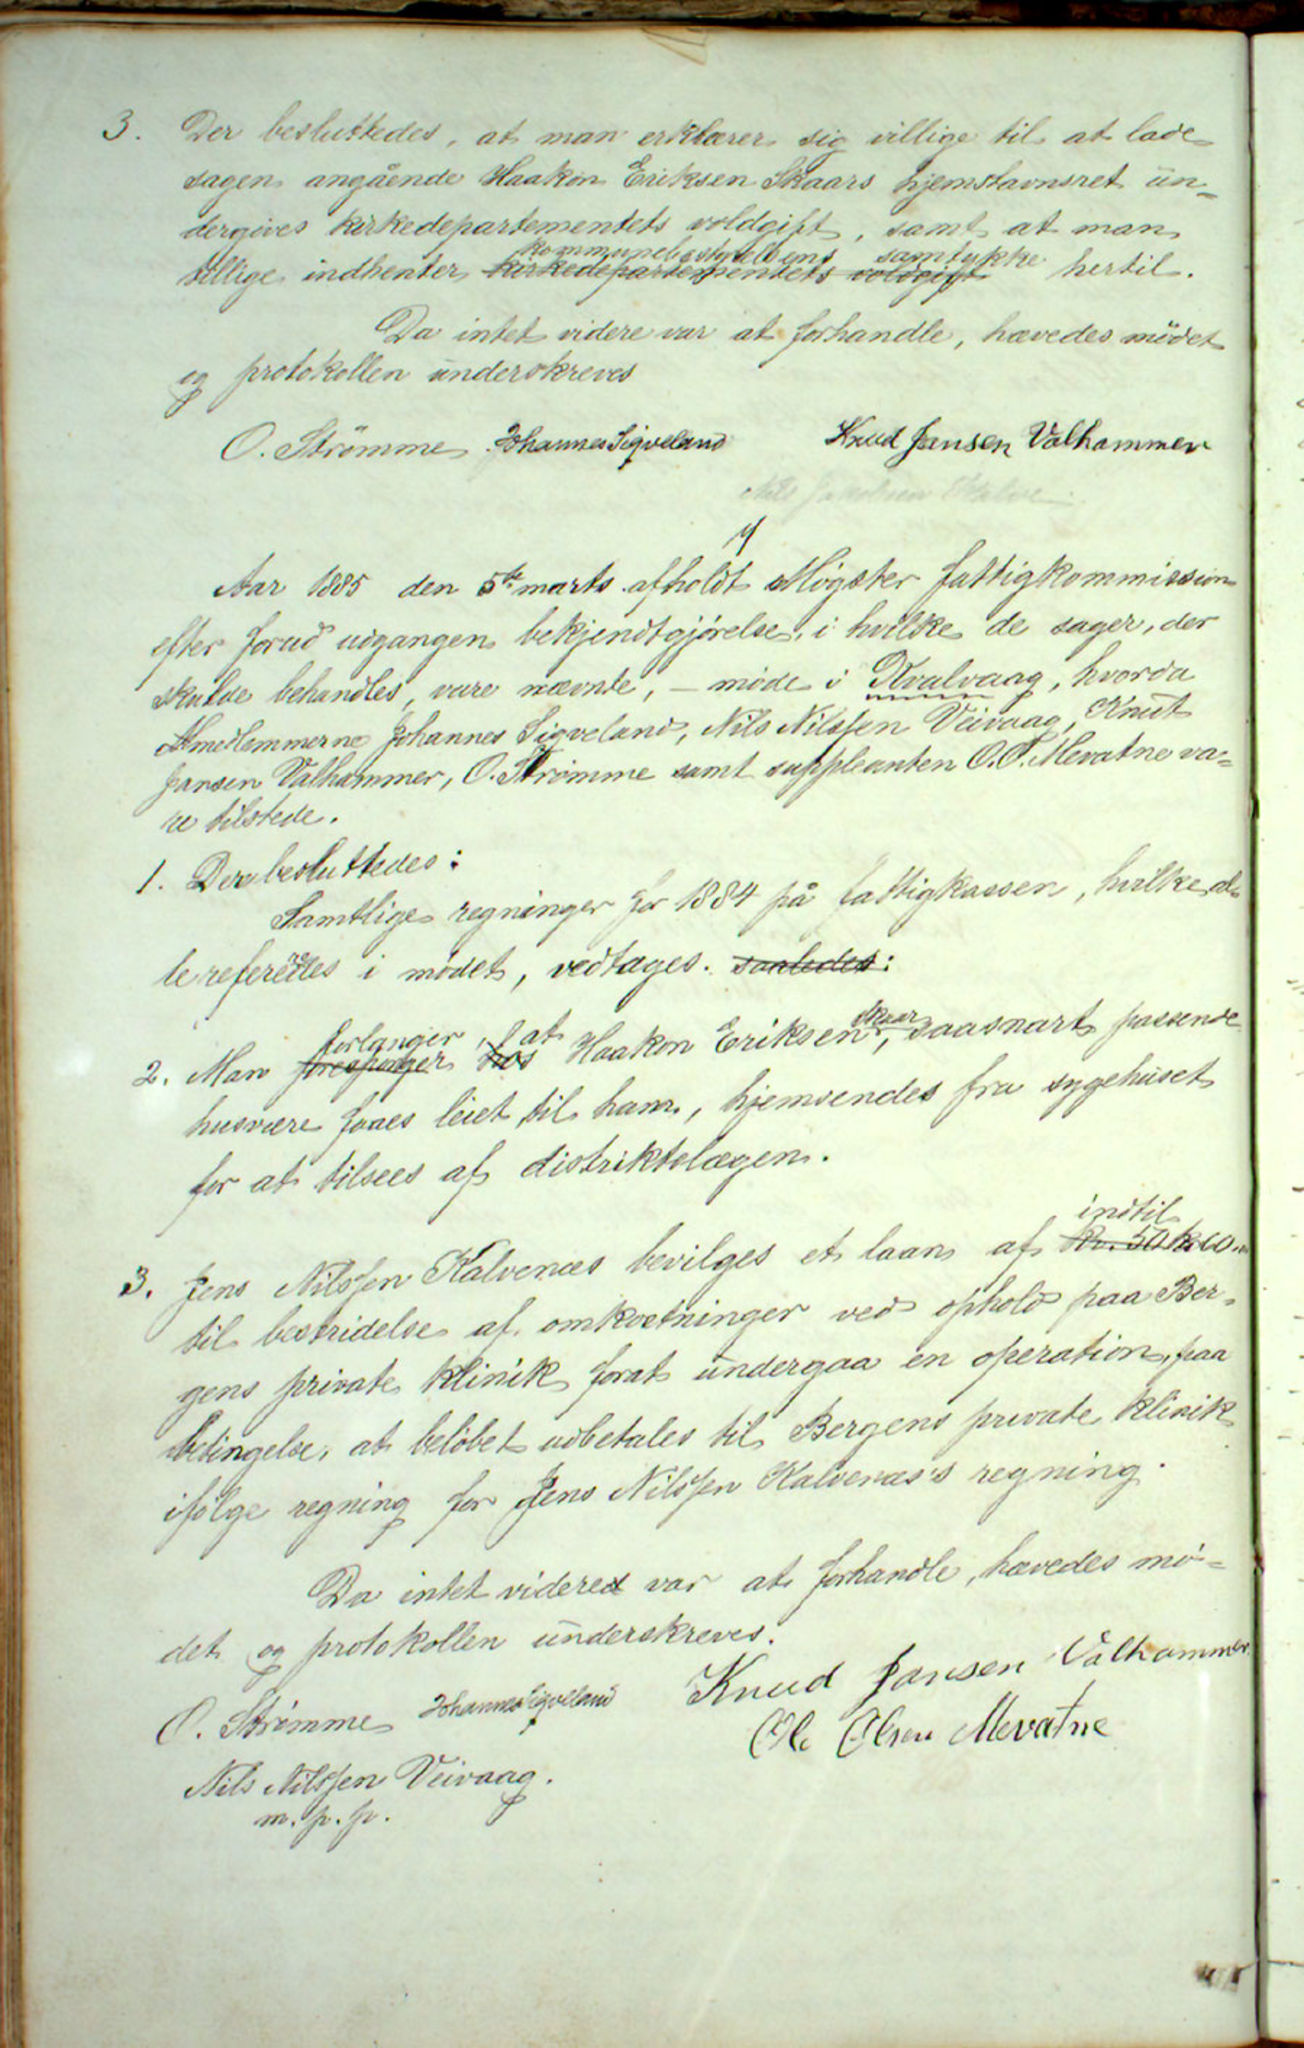 3. Der besluttedes, at man erklærer sig villige til at lade
sagen angående Haakon Eriksen Skaars hjemstavnsret un-
dergives kirkedepartementets voldgift, samt at man
kommunebestyrelsens samtykke
tillige indhenter kirkedepartementets voldgift hertil.
Da intet videre var at forhandle, hævedes mödet
og protokollen underskreves
O. Strömme Johannes Sigveland Knud Jansen Valhammer
Nils
Aar 1885 den 5te marts afholdt Møgster fattigkommission
efter forud udgangen bekjendtgjørelse, i hvilke de sager, der
skulde behandles, vare nævnte, – møde i Kvalvaag, hvorda
medlemmerne Johannes Sigveland, Nils Nilssen Veivaag, Knut
Jansen Valhammer, O. Strømme samt suppleanten O. O. Mevatne va-
re tilstede.
1. Der besluttedes:
Samtlige regninger for 1884 på fattigkassen, hvilke al-
le refereredes i mødet, vedtages. saaledes:
forlanger, at Skaar
2. Man forespørger hos Haakon Eriksen, saasnart passende
husvære faaes leiet til ham, hjemsendes fra sygehuset
for at tilsees af distriktslægen.
indtil
3. Jens Nilssen Kalvenæs bevilges et laan af kr. 50 kr 60
til bestridelse af omkostninger ved ophold paa Ber-
gens private klinik forat undergaa en operation, paa
betingelse, at beløbet udbetales til Bergens private klinik
ifølge regning for Jens Nilssen Kalvenæs's regning.
Da intet videre var at forhandle, hævedes mö-
det og protokollen underskreves.
O. Strømme Johannes Sigveland Knud Jansen Valhammer
Ole Olsen Mevatne
Nils Nilssen Veivaag.
m. p. p.